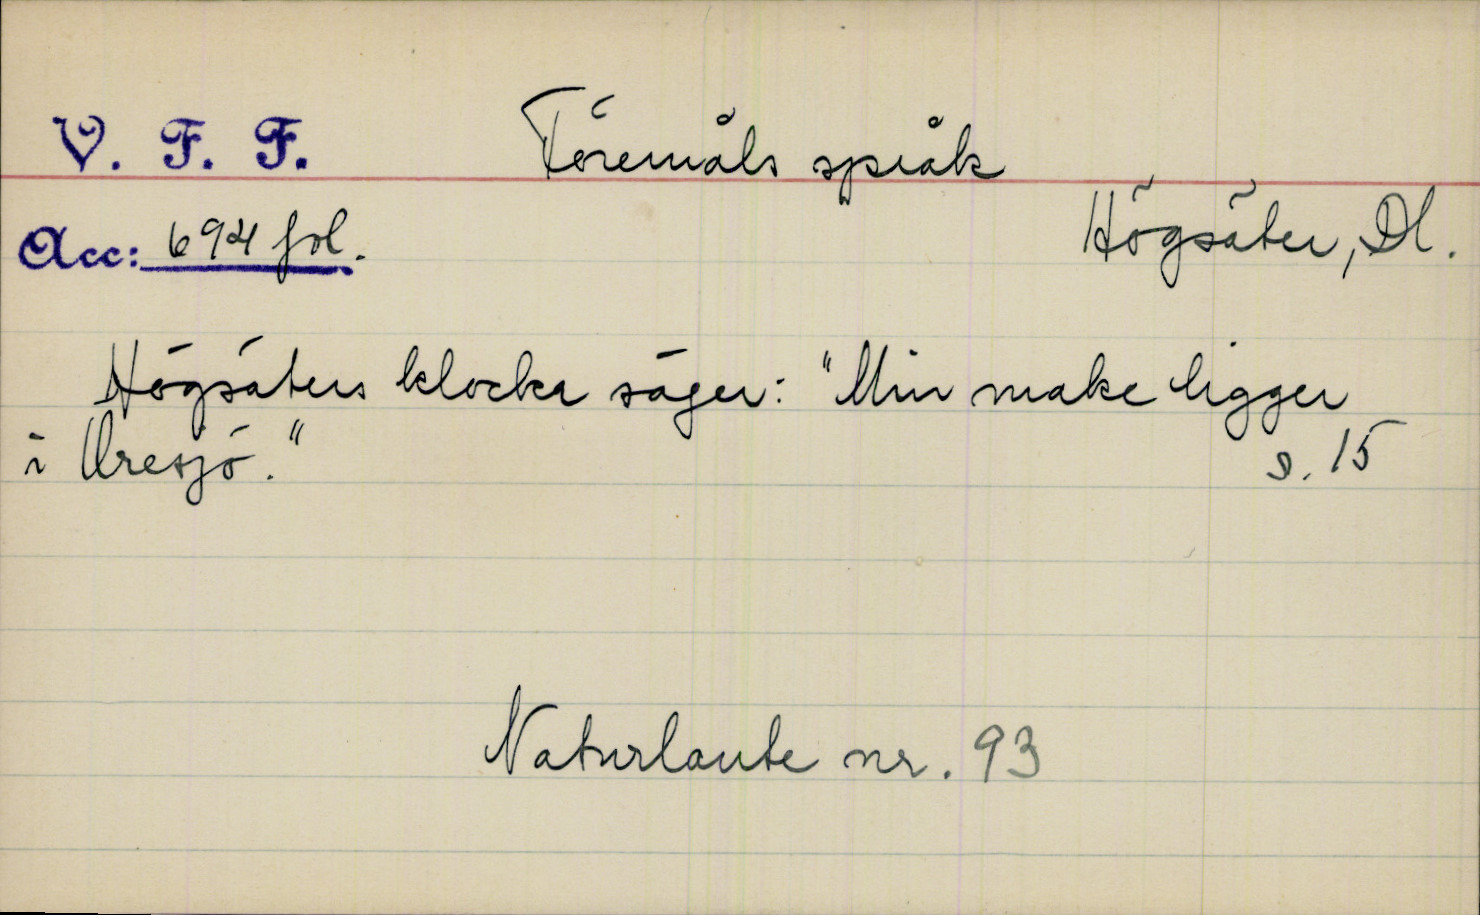 V. F. F.
Föremåls språk
Acc: 694 fol.
Högsäter, Dl.
Högsäters klocka säger: "Min make ligger
i Öresjö."
s. 15
Naturlaute nr. 93